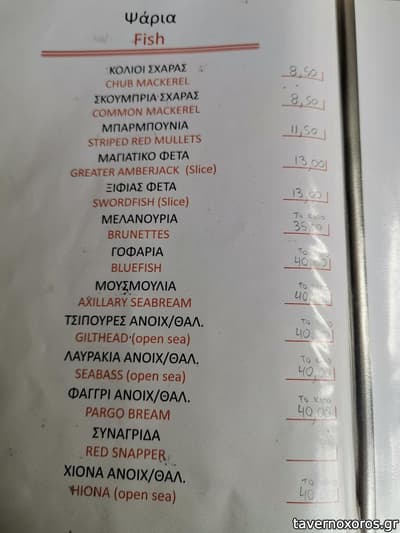 Ψάρια
Fish
ΚΟΛΙΟΙ ΣΧΑΡΑΣ 8,50
CHUB MACKEREL
ΣΚΟΥΜΠΡΙΑ ΣΧΑΡΑΣ 8,50
COMMON MACKEREL
ΜΠΑΡΜΠΟΥΝΙΑ 11,50
STRIPED RED MULLETS
ΜΑΓΙΑΤΙΚΟ ΦΕΤΑ 13,00
GREATER AMBERJACK (Slice)
ΞΙΦΙΑΣ ΦΕΤΑ 13,00
SWORDFISH (Slice)
ΜΕΛΑΝΟΥΡΙΑ Το κιλο
BRUNETTES 35,00
ΓΟΦΑΡΙΑ Το κιλο
BLUEFISH 40,00
ΜΟΥΣΜΟΥΛΙΑ Το κιλο
AXILLARY SEABREAM 40,00
ΤΣΙΠΟΥΡΕΣ ΑΝΟΙΧ/ΘΑΛ. Το κιλο
GILTHEAD (open sea) 40,00
ΛΑΥΡΑΚΙΑ ΑΝΟΙΧ/ΘΑΛ. Το κιλο
SEABASS (open sea) 40,00
ΦΑΓΓΡΙ ΑΝΟΙΧ/ΘΑΛ. Το κιλο
PARGO BREAM 40,00
ΣΥΝΑΓΡΙΔΑ
RED SNAPPER
ΧΙΟΝΑ ΑΝΟΙΧ/ΘΑΛ. Το κιλο
HIONA (open sea) 40,00
tavernoxoros.gr